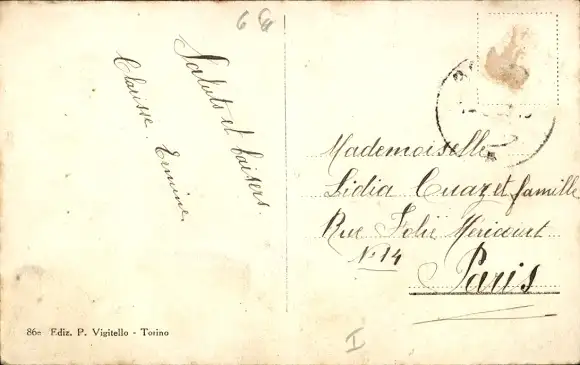 66
Saluts et baisers.
Clarisse. Ermine.
Mademoiselle
Lidia Cuaz et famille
Rue Folie Méricourt
No 14
Paris
I
86e Ediz. P. Vigitello - Torino